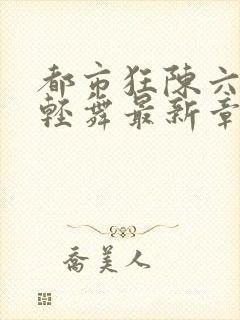 都市狂陳六
輕舞最新章
喬美人